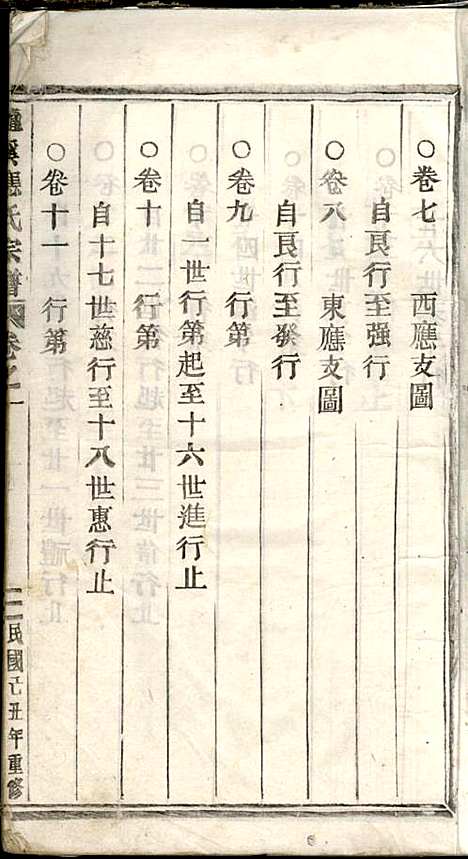 ○卷七 西應支圖
自良行至强行
○卷八 東應支圖
自良行至發行
○卷九 行第
自一世行第起至十六世進行止
○卷十 行第
自十七世慈行至十八世惠行止
○卷十一 行第
應氏宗譜 卷之一
民國己丑年重修